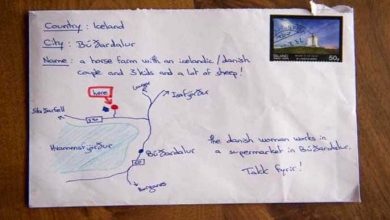 Country : Iceland
City : Búðardalur
Name : a horse farm with an icelandic / danish
couple and 3 kids and a lot of sheep !
ÍSLAND
50g
here
Ísafjörður
Hvammsfjörður
Búðardalur
Borgarnes
the danish woman works in
a supermarket in Búðardalur.
Takk fyrir !